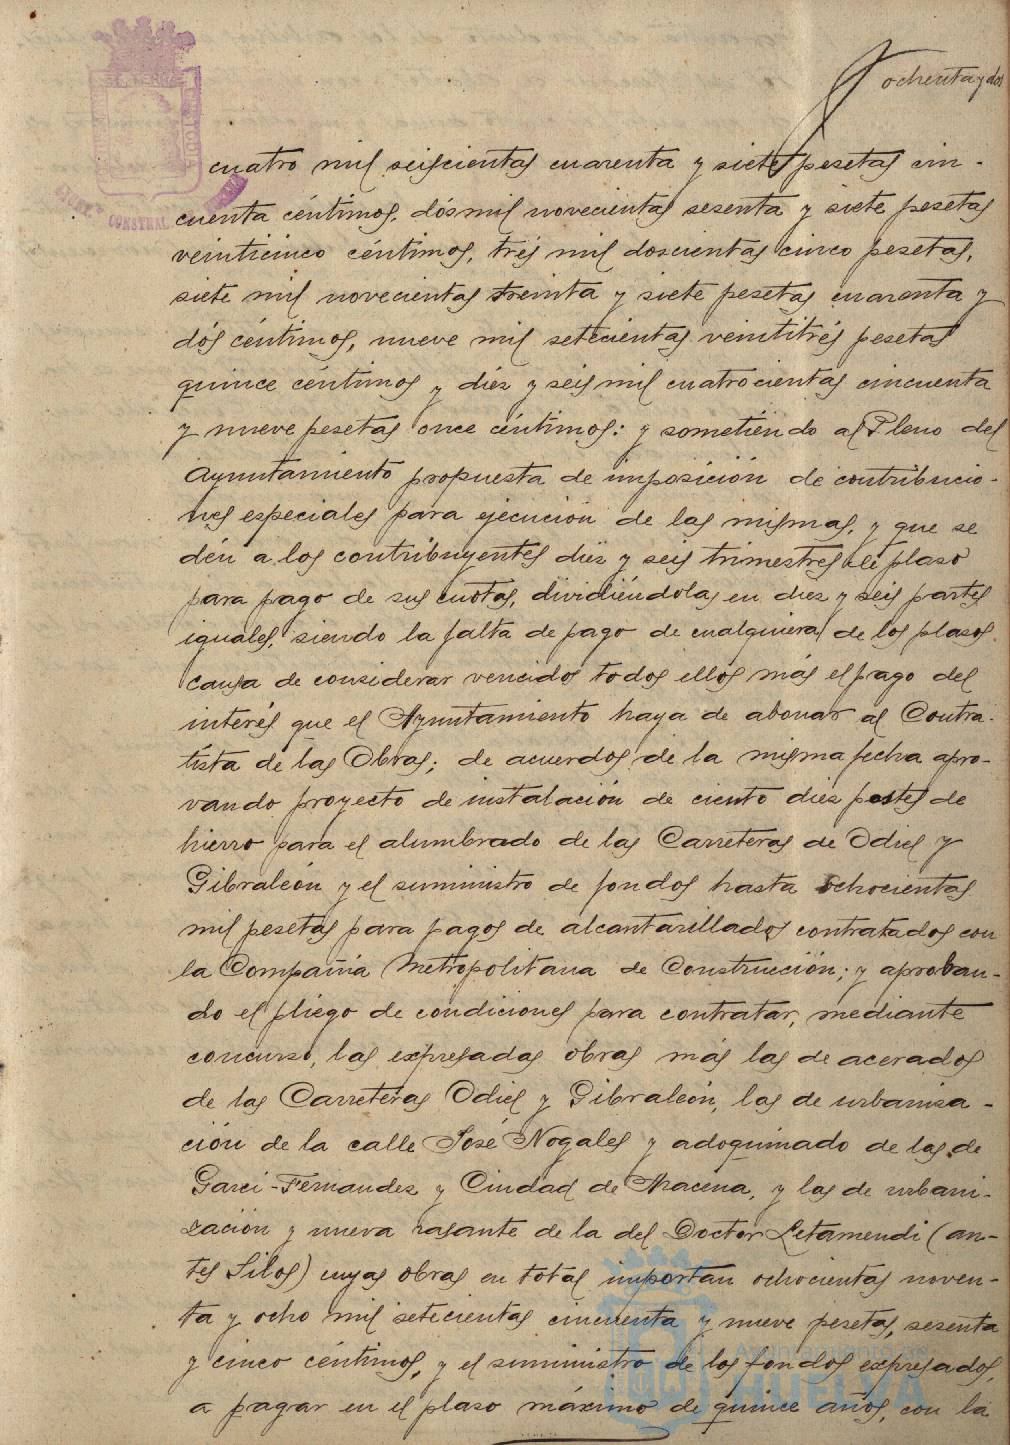 ochenta y dos
cuatro mil seiscientas cuarenta y siete pesetas cin-
cuenta céntimos, dós mil novecientas sesenta y siete pesetas
veinticinco céntimos, trés mil doscientas cinco pesetas,
siete mil novecientas treinta y siete pesetas cuarenta y
dós céntimos, nueve mil setecientas veintitrés pesetas
quince céntimos y diéz y seis mil cuatrocientas cincuenta
y nueve pesetas once céntimos: y sometiéndo al Pleno del
Ayuntamiento propuesta de imposición de contribucio-
nes especiales para ejecución de las mismas, y que se
dén a los contribuyentes diéz y seis trimestres de plaso
para pago de sus cuotas, dividiéndolas en diez y seis partes
iguales, siendo la falta de pago de cualquiera de los plasos
causa de considerar vencidos todos ellos más el pago del
interés que el Ayuntamiento haya de abonar al Contra-
tista de las Obras; de acuerdos de la misma fecha apro-
vando proyecto de instalación de ciento diéz postes de
hierro para el alumbrado de las Carreteras de Odiel y
Gibraleón y el suministro de fondos hasta ochocientas
mil pesetas para pagos de alcantarillados contratados con
la Compañía Metropolitana de Construcción; y aproban-
do el pliego de condiciones para contratar, mediante
concurso, las expresadas obras más las de acerados
de las Carreteras Odiel y Gibraleón, las de urbanisa-
ción de la calle José Nogales y adoquinado de las de
Garci-Fernandez y Ciudad de Aracena, y las de urbani-
zación y nueva rasante de la del Doctor Letamendi (an-
tes Silos) cuyas obras en total importan ochocientas noven-
ta y ocho mil setecientas cincuenta y nueve pesetas, sesenta
y cinco céntimos, y el suministro de los fondos expresados,
a pagar en el plaso máximo de quince años, con la
Ayuntamiento de
HUELVA